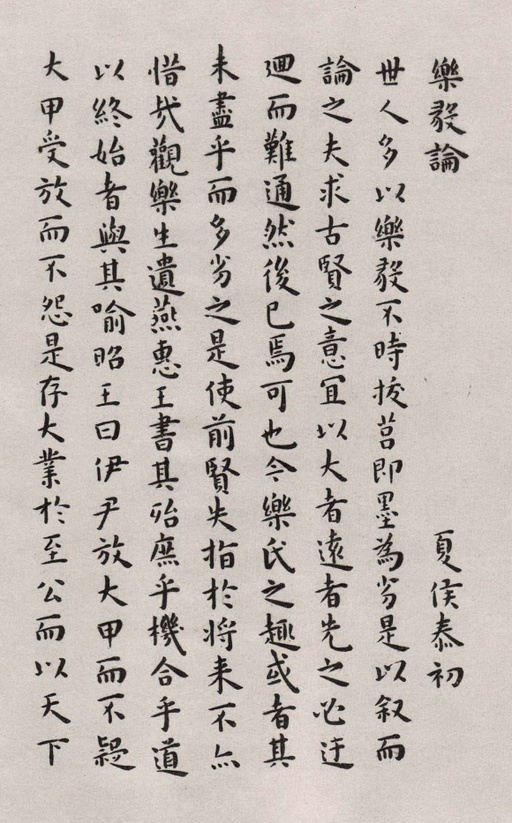 樂毅論 夏侯泰初
世人多以樂毅不時拔莒即墨為劣是以叙而
論之夫求古賢之意宜以大者遠者先之必迂
迴而難通然後已焉可也今樂氏之趣或者其
未盡乎而多劣之是使前賢失指於将来不亦
惜哉觀樂生遺燕惠王書其殆庶乎機合乎道
以終始者與其喻昭王曰伊尹放大甲而不疑
大甲受放而不怨是存大業於至公而以天下